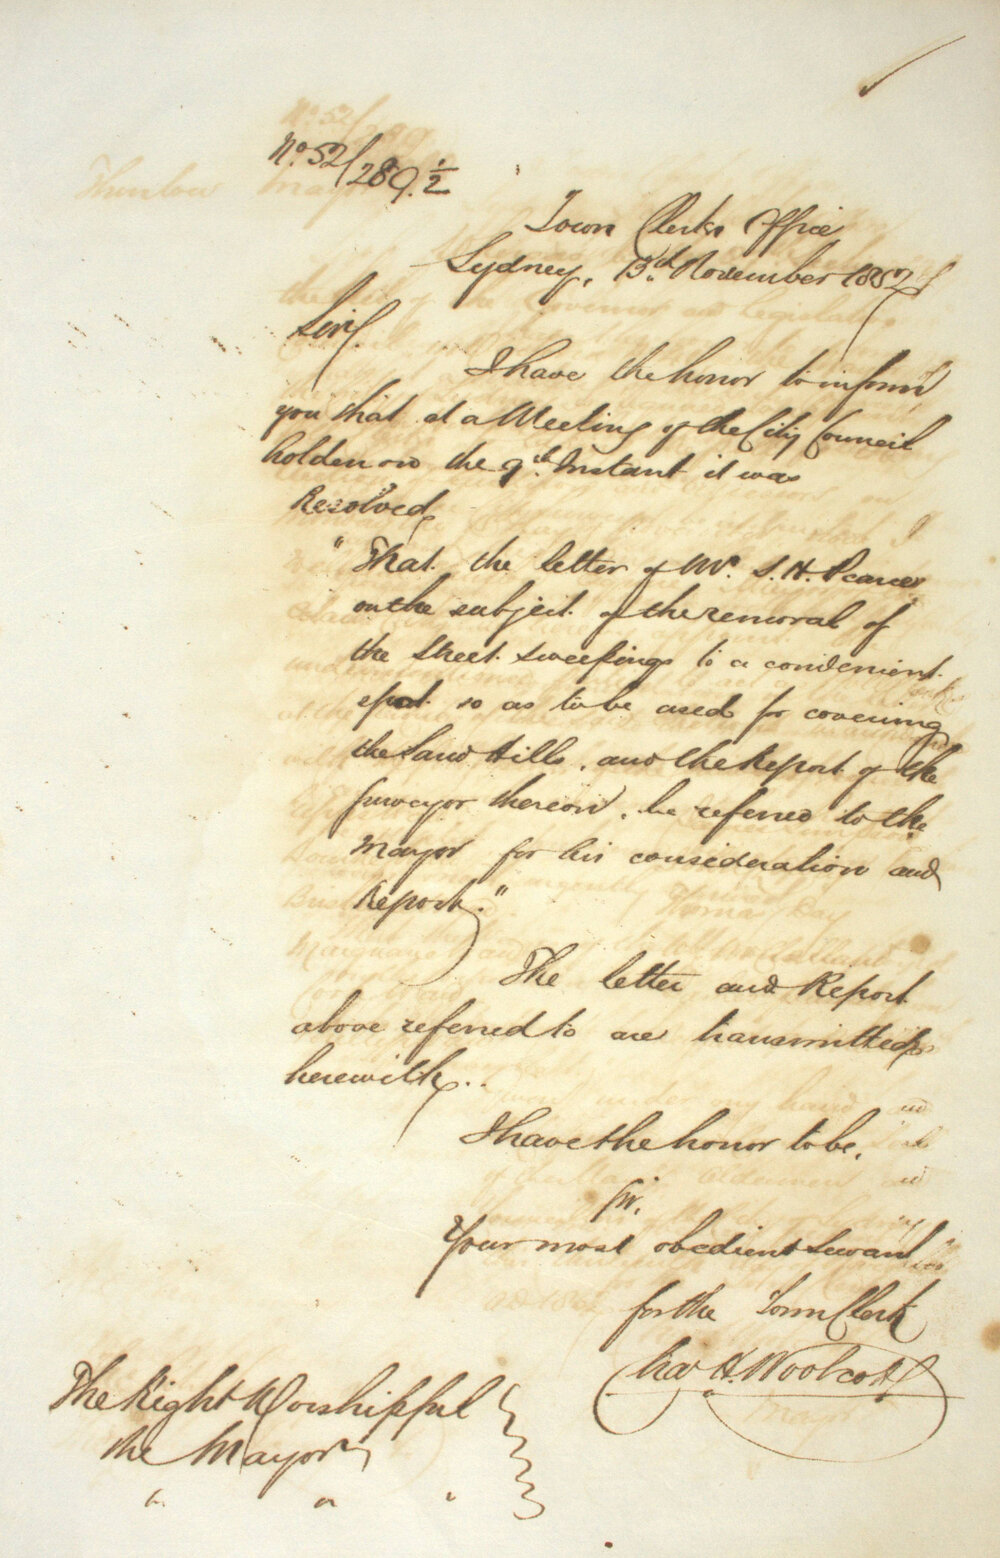 No. 52/289. 1/2
Town Clerks Office
Sydney, 13th November 1852
Sir,
I have the honor to inform
you that at a Meeting of the City Council
holden on the 9th Instant it was
Resolved,
"That the letter of Mr. S. H. Pearce
on the subject of the removal of
the Street sweepings to a convenient
spot so as to be used for covering
the Sand Hills, and the Report of the
Surveyor thereon, be referred to the
Mayor for his consideration and
Report."
The letter and Report
above referred to are transmitted
herewith.
I have the honor to be,
Sir,
Your most obedient Servant
for the Town Clerk
Chas H. Woolcott
The Right Worshipful
the Mayor
" " "